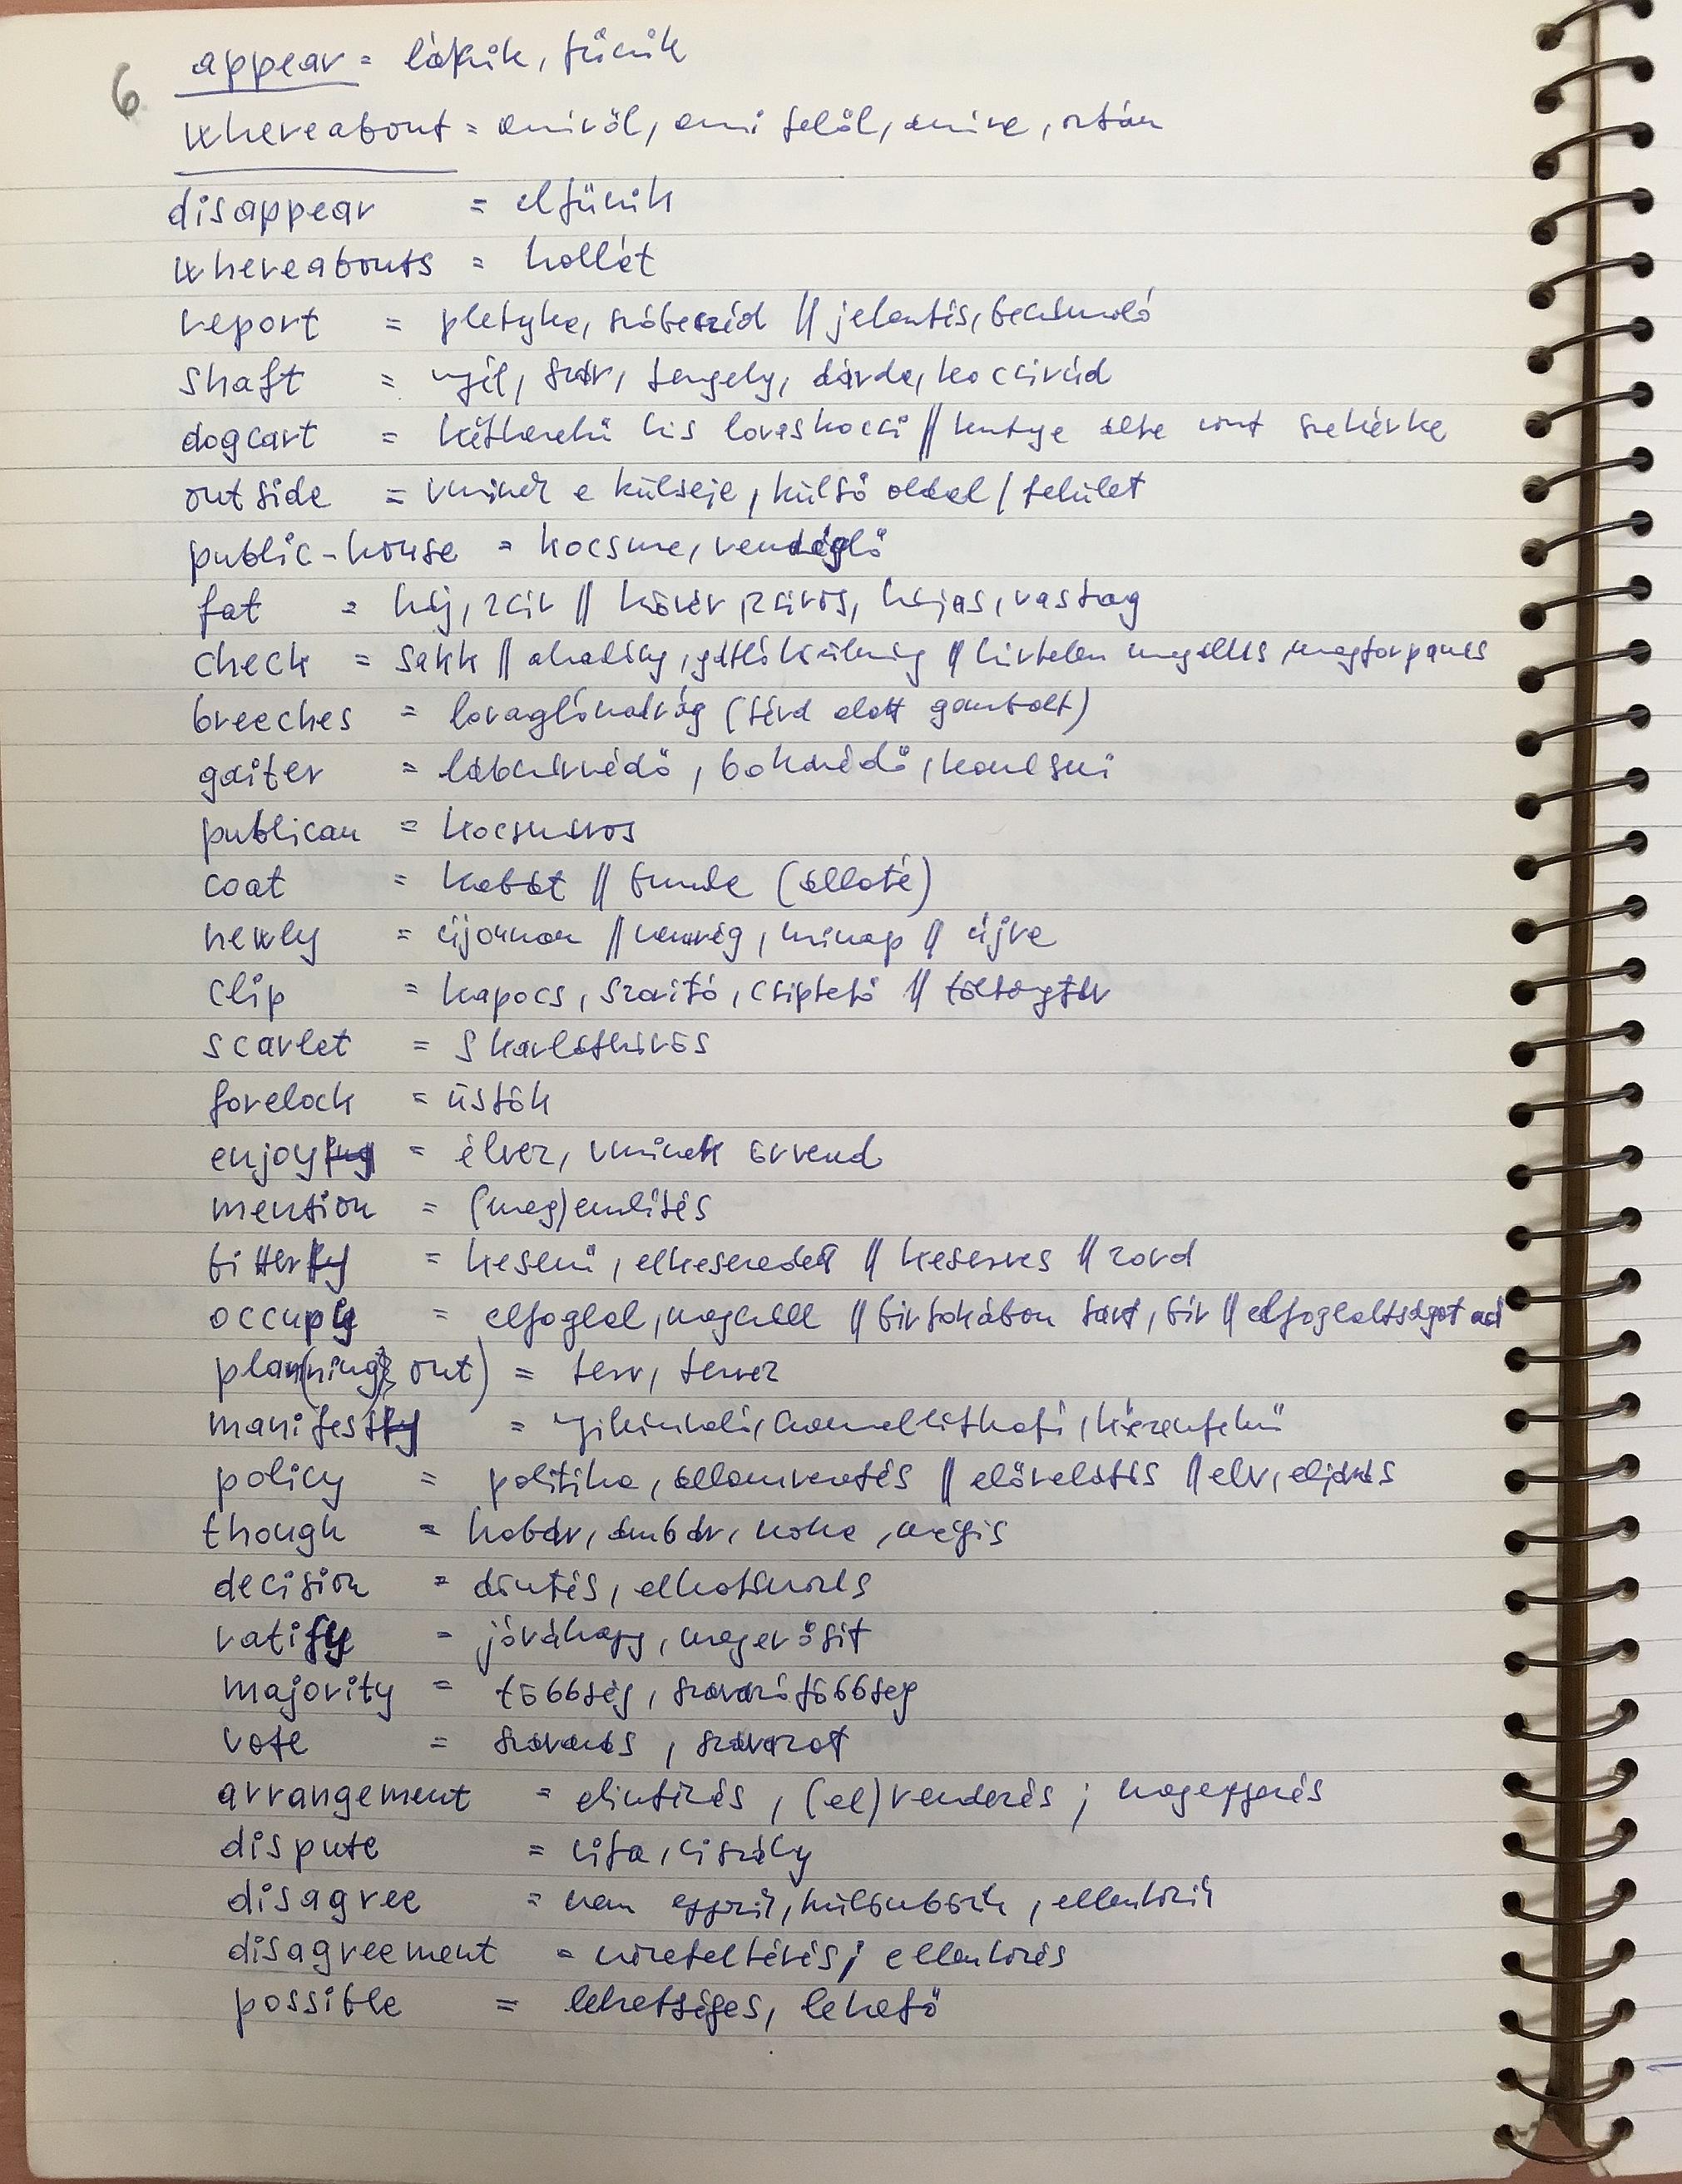 6 appear = látszik, tűnik
whereabout = amiről, ami felől, amire, után
disappear = eltűnik
whereabouts = hollét
report = pletyka, szóbeszéd || jelentés, beszámoló
shaft = nyél, szár, tengely, dárda, kocsirúd
dogcart = kétkerekű kis lovaskocsi || kutya által vont szekérke
outside = vminek a külseje, külső oldal / felület
public-house = kocsma, vendéglő
fat = háj, zsír || kövér, zsíros, hájas, vastag
check = sakk || akadály, gátló körülmény || hirtelen megállás, megtorpanás
breeches = lovaglónadrág (térd alatt gombolt)
gaiter = lábszárvédő, bokavédő, kamásni
publican = kocsmáros
coat = kabát || bunda (állaté)
newly = újonnan || nemrég, minap || újra
clip = kapocs, szorító, csiptető || töltőgtár
scarlet = skarlátvörös
forelock = üstök
enjoy = élvez, vminek örvend
mention = (meg)említés
bitter = keserű, elkeseredett || keserves || zord
occupy = elfoglal, megszáll || birtokában tart, bír || elfoglaltságot ad
plan(ning) out) = terv, tervez
manifest = nyilvánvaló, kézenfekvő
policy = politika, államvezetés || előrelátás || elv, eljárás
though = habár, ámbár, noha, mégis
decision = döntés, elhatározás
ratify = jóváhagy, megerősít
majority = többség, szavazótöbbség
vote = szavazás, szavazat
arrangement = elintézés, (el)rendezés; megegyezés
dispute = vita, viszály
disagree = nem egyezik, különbözik, ellenkezik
disagreement = nézeteltérés; ellenkezés
possible = lehetséges, lehető